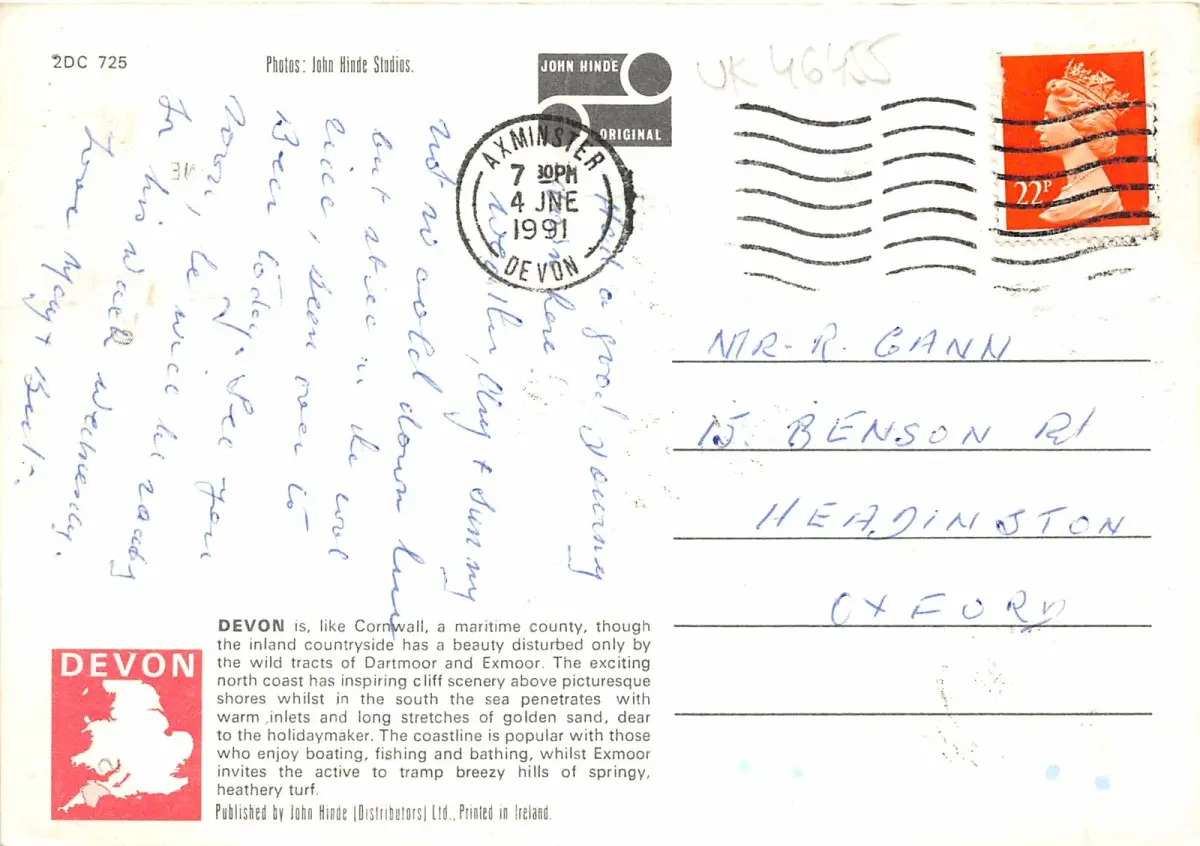 2DC 725
Photos: John Hinde Studios.
JOHN HINDE
ORIGINAL
UK 46455
AXMINSTER
7 30PM
4 JNE
1991
DEVON
22P
Had a good Journey
down here
Weather, Dry & Sunny
Not so cold down here
but nice in the cool
Been over to
Been today. See you
be nice
this week Wednesday.
Love May & Bert.
MR. R. GANN
15. BENSON Rd
HEADINGTON
OXFORD
DEVON is, like Cornwall, a maritime county, though
the inland countryside has a beauty disturbed only by
the wild tracts of Dartmoor and Exmoor. The exciting
north coast has inspiring cliff scenery above picturesque
shores whilst in the south the sea penetrates with
warm inlets and long stretches of golden sand, dear
to the holidaymaker. The coastline is popular with those
who enjoy boating, fishing and bathing, whilst Exmoor
invites the active to tramp breezy hills of springy,
heathery turf.
Published by John Hinde (Distributors) Ltd., Printed in Ireland.
DEVON